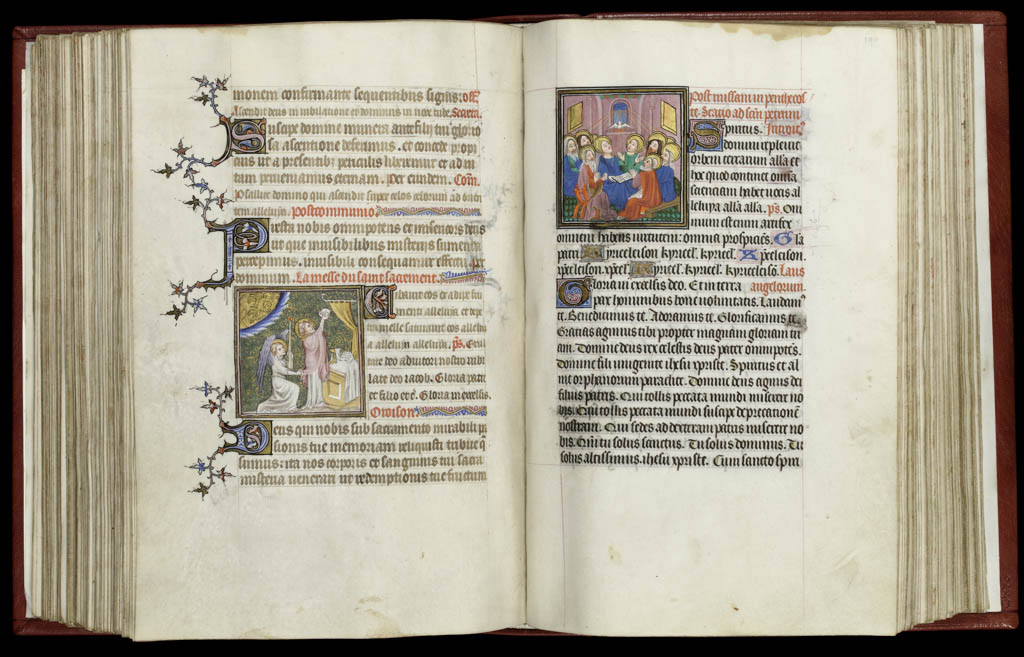 monem confirmante sequentibus signis: off.
Ascendit deus in iubilatione et dominus in voce tube. Secreta.
Suscipe domine munera que pro filii tui glorio
sa ascentione deferimus. et concede propi
cius ut a presentibz periculis liberemur et ad ui
tam perueniamus eternam. Per eundem. Com.
Psallite domino qui ascendit super celos celorum ad orien
tem alleluia. postcommunio
Presta nobis omnipotens et misericors deus
ut que inuisibilibus misteriis sumenda
percepimus. inuisibili consequamur effectu. per
dominum. La messe du saint sacrement.
Cibauit eos ex adipe fru
menti alleluia et de pe
tra melle saturauit eos allelui
a alleluia alleluia. ps. Exul
tate deo adiutori nostro iubi
late deo iacob. Gloria patri
et filio et c. Gloria in excelsis.
Oroison
Deus qui nobis sub sacramento mirabili pas
sionis tue memoriam reliquisti tribue qs
sumus: ita nos corporis et sanguinis tui sacra
misteria uenerari ut redemptionis tue fructum
Post missam in penthecos
te. Stacio ad scm petrum
Spiritus. Introit
domini repleuit
orbem terrarum alla et
hoc quod continet omia
scienciam habet uocis al
leluya alla alla. ps. Om
nium est enim artifex
omnem habens uirtutem: omnia prospiciens. Gla
patri. Kyrieeleison kyrieel. kyrieel. Xpeeleison.
xpeeleison. xpeel. Kyrieel. kyrieel. kyrieeleison. Laus
Gloria in excelsis deo. Et in terra angelorum.
pax hominibus bone uoluntatis. Laudamus
te. Benedicimus te. Adoramus te. Glorificamus te.
Gratias agimus tibi propter magnam gloriam tu
am. Domine deus rex celestis deus pater omnipotens.
Domine fili unigenite ihesu xpriste. Spiritus et al
me orphanorum paraclite. Domine deus agnus dei
filius patris. Qui tollis peccata mundi miserere no
bis. Qui tollis peccata mundi suscipe deprecationem
nostram. Qui sedes ad dexteram patris miserere no
bis. Qm tu solus sanctus. Tu solus dominus. Tu
solus altissimus. ihesu xpriste. Cum sancto spiri